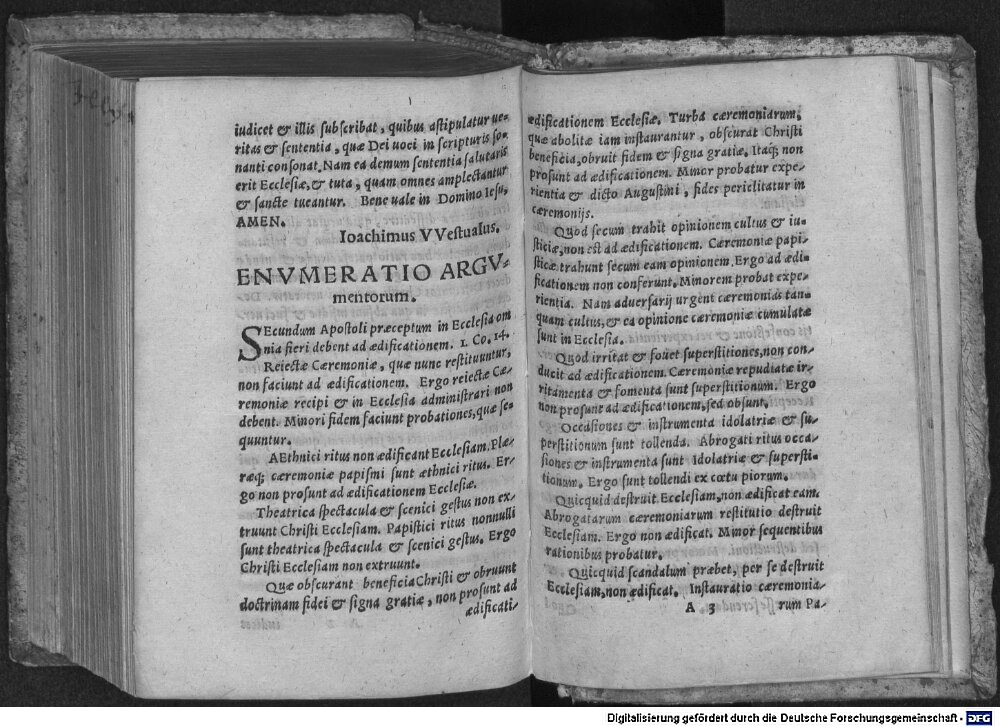 iudicet & illis subscribat, quibus astipulatur ue-
ritas & sententia, quæ Dei uoci in scripturis so-
nanti consonat. Nam ea demum sententia salutaris
erit Ecclesiæ, & tuta, quam omnes amplectantur
& sancte tueantur. Bene uale in Domino Iesu,
AMEN.
Ioachimus VVestualus.
ENVMERATIO ARGV-
mentorum.
SEcundum Apostoli præceptum in Ecclesia om
nia fieri debent ad ædificationem. 1. Co. 14.
Reiectæ Cæremoniæ, quæ nunc restituuntur,
non faciunt ad ædificationem. Ergo reiectæ Cæ-
remoniæ recipi & in Ecclesia administrari non
debent. Minori fidem faciunt probationes, quæ se-
quuntur.
AEthnici ritus non ædificant Ecclesiam. Plæ-
ræq; cæremoniæ papismi sunt æthnici ritus. Er-
go non prosunt ad ædificationem Ecclesiæ.
Theatrica spectacula & scenici gestus non ex-
truunt Christi Ecclesiam. Papistici ritus nonnulli
sunt theatrica spectacula & scenici gestus. Ergo
Christi Ecclesiam non extruunt.
Quæ obscurant beneficia Christi & obruunt
doctrinam fidei & signa gratiæ, non prosunt ad
ædificati-
ædificationem Ecclesiæ. Turba cæremoniarum,
quæ abolitæ iam instaurantur, obscurat Christi
beneficia, obruit fidem & signa gratiæ. Itaq; non
prosunt ad ædificationem. Minor probatur expe-
rientia & dicto Augustini, fides periclitatur in
cæremonijs.
Quod secum trahit opinionem cultus & iu-
sticiæ, non est ad ædificationem. Cæremoniæ papi-
sticæ trahunt secum eam opinionem. Ergo ad ædi-
ficationem non conferunt. Minorem probat expe-
rientia. Nam aduersarij urgent cæremonias tan-
quam cultus, & ea opinione cæremoniæ cumulatæ
sunt in Ecclesia.
Quod irritat & fouet superstitiones, non con-
ducit ad ædificationem. Cæremoniæ repudiatæ ir-
ritamenta & fomenta sunt superstitionum. Ergo
non prosunt ad ædificationem, sed obsunt.
Occasiones & instrumenta idolatriæ & su-
perstitionum sunt tollenda. Abrogati ritus occa-
siones & instrumenta sunt Idolatriæ & supersti-
tionum. Ergo sunt tollendi ex cœtu piorum.
Quicquid destruit Ecclesiam, non ædificat eam.
Abrogatarum cæremoniarum restitutio destruit
Ecclesiam. Ergo non ædificat. Minor sequentibus
rationibus probatur.
Quicquid scandalum præbet, per se destruit
Ecclesiam, non ædificat. Instauratio cæremonia-
A 3 rum Pa-
Digitalisierung gefördert durch die Deutsche Forschungsgemeinschaft - DFG